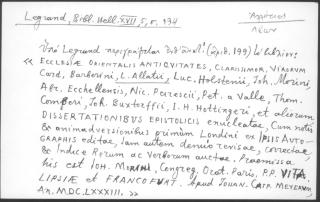 Legrand, Bibl. Hell. XVII 5, σ. 134
Ἀλλάτιος
Λέων
Ὑπὸ Legrand περιγράφεται (ἀρ. 199) τὸ βιβλίον:
« ECCLESIÆ ORIENTALIS ANTIQVITATES, CLARISSIMOR. VIRORUM
Card. Barberini, L. Allatii, Luc. Holstenii, Joh. Morini,
Abr. Ecchellensis, Nic. Peirescii, Pet. a Valle, Thom.
Comberi, Joh. Buxtorffii, I. H. Hottingeri, et aliorum
DISSERTATIONIBUS EPISTOLICIS enucleatae, Cum notis
& animadversionibus primum Londini ex IPSIS AUTO-
GRAPHIS editae, jam autem denuo revisae, correctae,
& Indice Rerum ac Verborum auctae. Praemissa
his est Joh. MORINI, Congreg. Orat. Paris. P.P. VITA.
LIPSIÆ et FRANCOFURT. Apud JOHAN. CASP. MEYERUM,
An. M.DC.LXXXIII. »